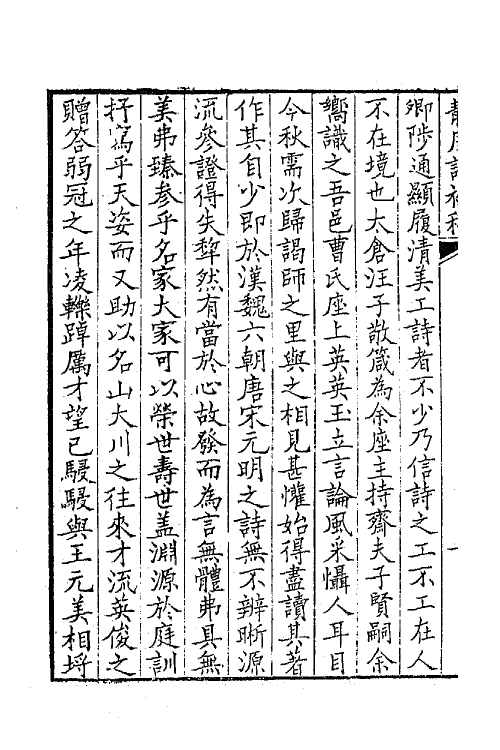 卿陟通顯履清美工詩者不少乃信詩之工不工在人
不在境也太倉汪子敬箴為余座主持齋夫子賢嗣余
嚮識之吾邑曹氏座上英英玉立言論風采懾人耳目
今秋需次歸謁師之里與之相見甚懽始得盡讀其著
作其自少即於漢魏六朝唐宋元明之詩無不辨晰源
流參證得失犂然有當於心故發而為言無體弗具無
美弗臻參乎名家大家可以榮世壽世蓋淵源於庭訓
抒寫乎天姿而又助以名山大川之往來才流英俊之
贈答弱冠之年凌轢踔厲才望已駸駸與王元美相埒